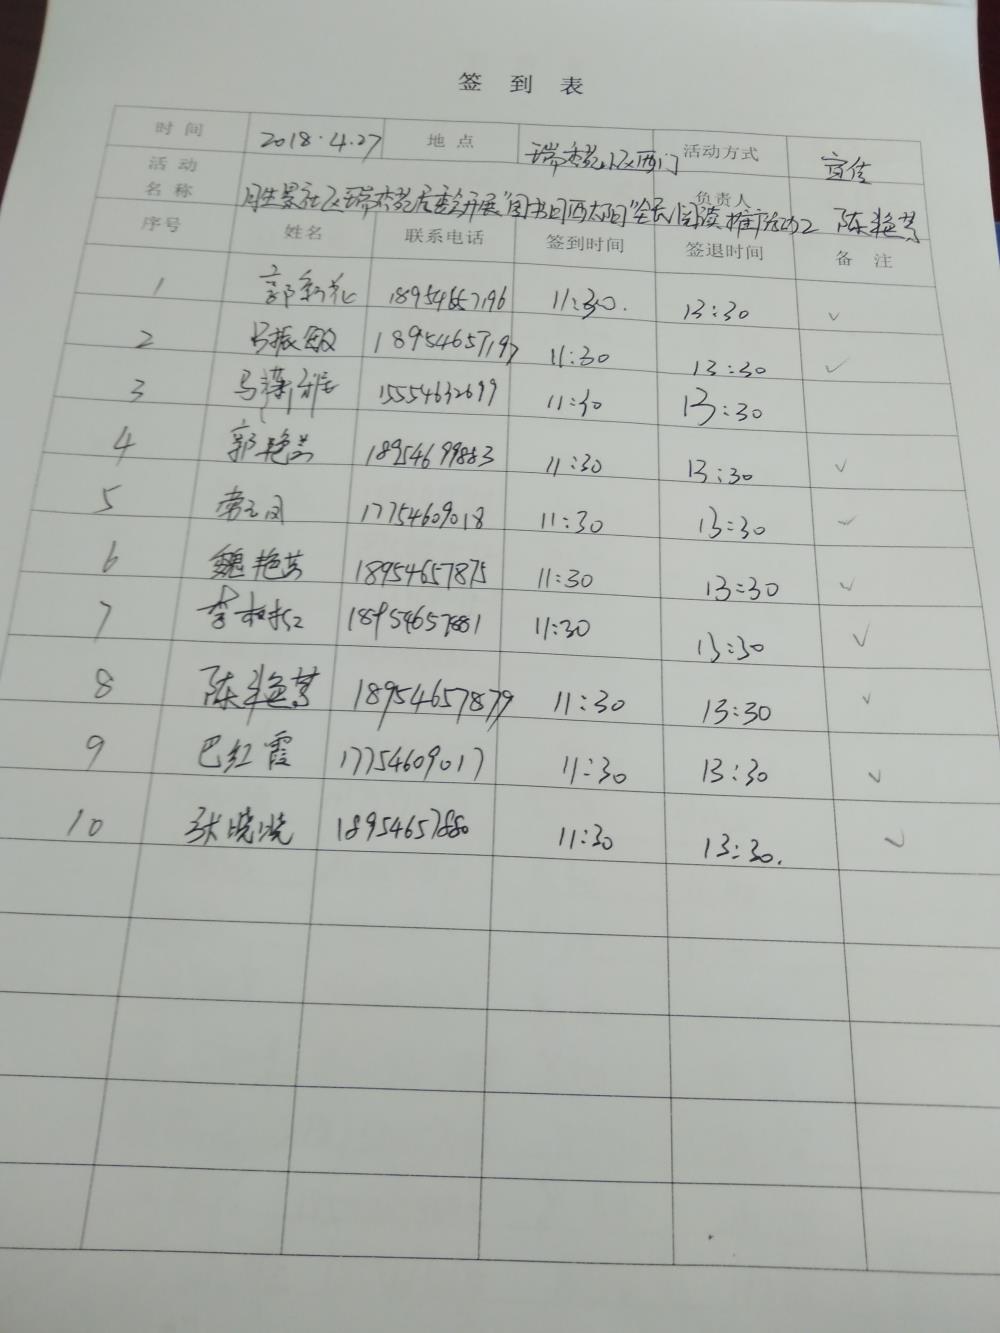 签 到 表
时 间 2018.4.27 地 点 瑞杰苑小区西门 活动方式 宣传
活 动
名 称 月生景社区瑞杰苑居委会开展"图书日晒太阳"全民阅读推广活动 负责人 陈艳芳
序号 姓名 联系电话 签到时间 签退时间 备 注
1 郭新花 18954657196 11:30. 13:30 ✓
2 马振敏 18954657197 11:30 13:30 ✓
3 马潇雅 15554632699 11:30 13:30
4 郭艳兰 18954699883 11:30 13:30 ✓
5 17754609018 11:30 13:30 ✓
6 魏艳芳 18954657875 11:30 13:30 ✓
7 李 18954657881 11:30 13:30 ✓
8 陈艳芳 18954657879 11:30 13:30 ✓
9 巴红霞 17754609017 11:30 13:30 ✓
10 张晓晓 18954657880 11:30 13:30. ✓